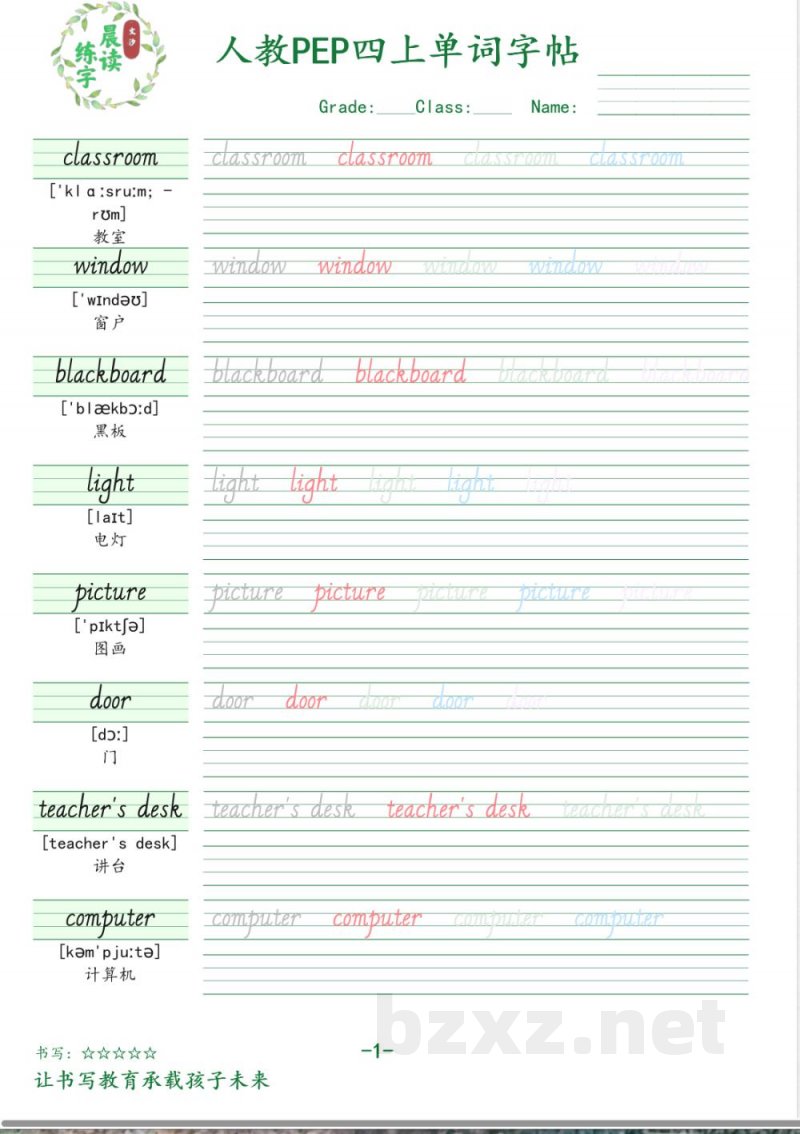 文汐
晨读
练字
人教PEP四上单词字帖
Grade:____Class:____ Name:
classroom classroom classroom classroom classroom
[ˈklɑːsruːm; -
rʊm]
教室
window window window window window window
[ˈwɪndəʊ]
窗户
blackboard blackboard blackboard blackboard blackboard
[ˈblækbɔːd]
黑板
light light light light light light
[laɪt]
电灯
picture picture picture picture picture picture
[ˈpɪktʃə]
图画
door door door door door door
[dɔː]
门
teacher's desk teacher's desk teacher's desk teacher's desk
[teacher's desk]
讲台
computer computer computer computer computer
[kəmˈpjuːtə]
计算机
bzxz.net
书写：☆☆☆☆☆
-1-
让书写教育承载孩子未来